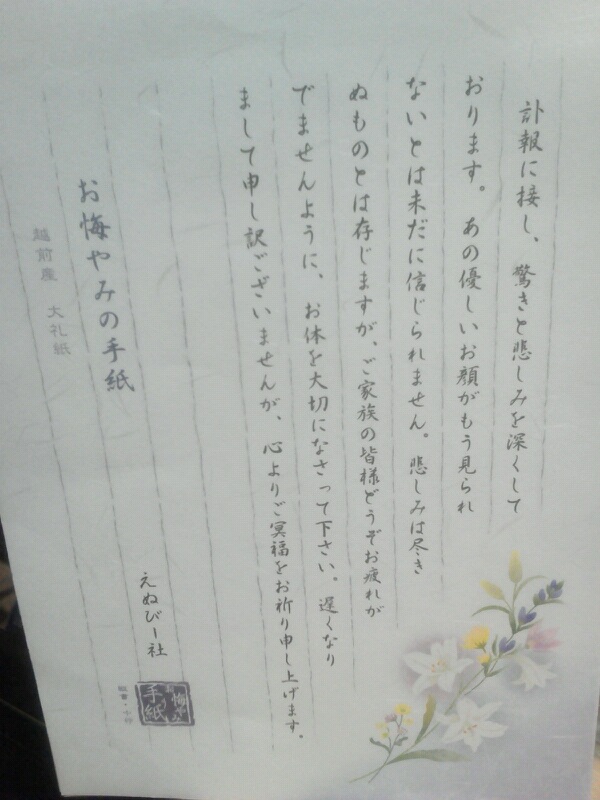 訃報に接し、驚きと悲しみを深くして
おります。あの優しいお顔がもう見られ
ないとは未だに信じられません。悲しみは尽き
ぬものとは存じますが、ご家族の皆様どうぞお疲れが
でませんように、お体を大切になさって下さい。遅くなり
まして申し訳ございませんが、心よりご冥福をお祈り申し上げます。
えぬびー社
お悔やみの手紙
越前産 大礼紙
お悔やみ
手紙